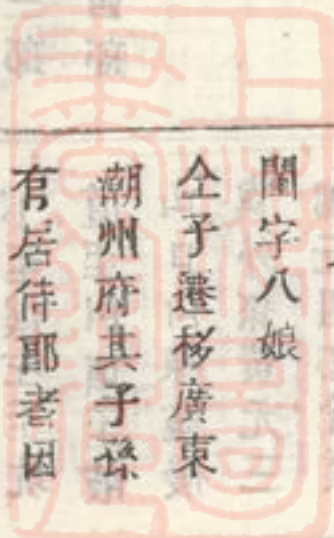 閨字八娘
仝子遷移廣東
潮州府其子孫
有居侍郎者因